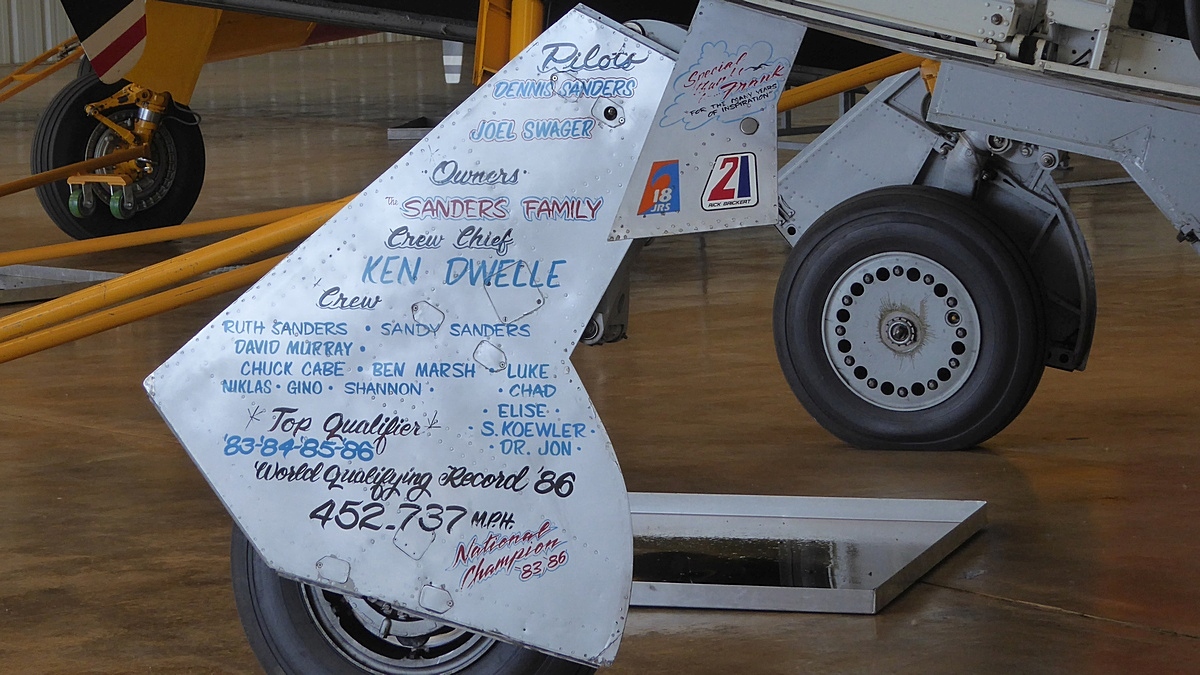 Pilots
DENNIS SANDERS
JOEL SWAGER
Owners
The SANDERS FAMILY
Crew Chief
KEN DWELLE
Crew
RUTH SANDERS • SANDY SANDERS
DAVID MURRAY •
CHUCK CABE • BEN MARSH • LUKE
NIKLAS • GINO • SHANNON •
CHAD
• ELISE •
• S.KOEWLER
• DR. JON •
Top Qualifier
'83-'84-'85-'86
World Qualifying Record '86
452.737 M.P.H.
National
Champion
'83,'86
Special
Frank
"FOR THE MANY YEARS
OF INSPIRATION"
18
JRS
21
RICK BRICKERT